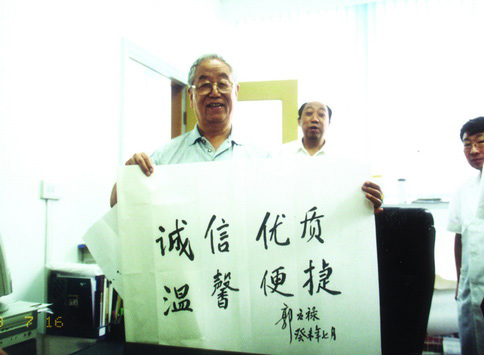 诚信 优质
温馨 便捷
癸未年七月
7 16